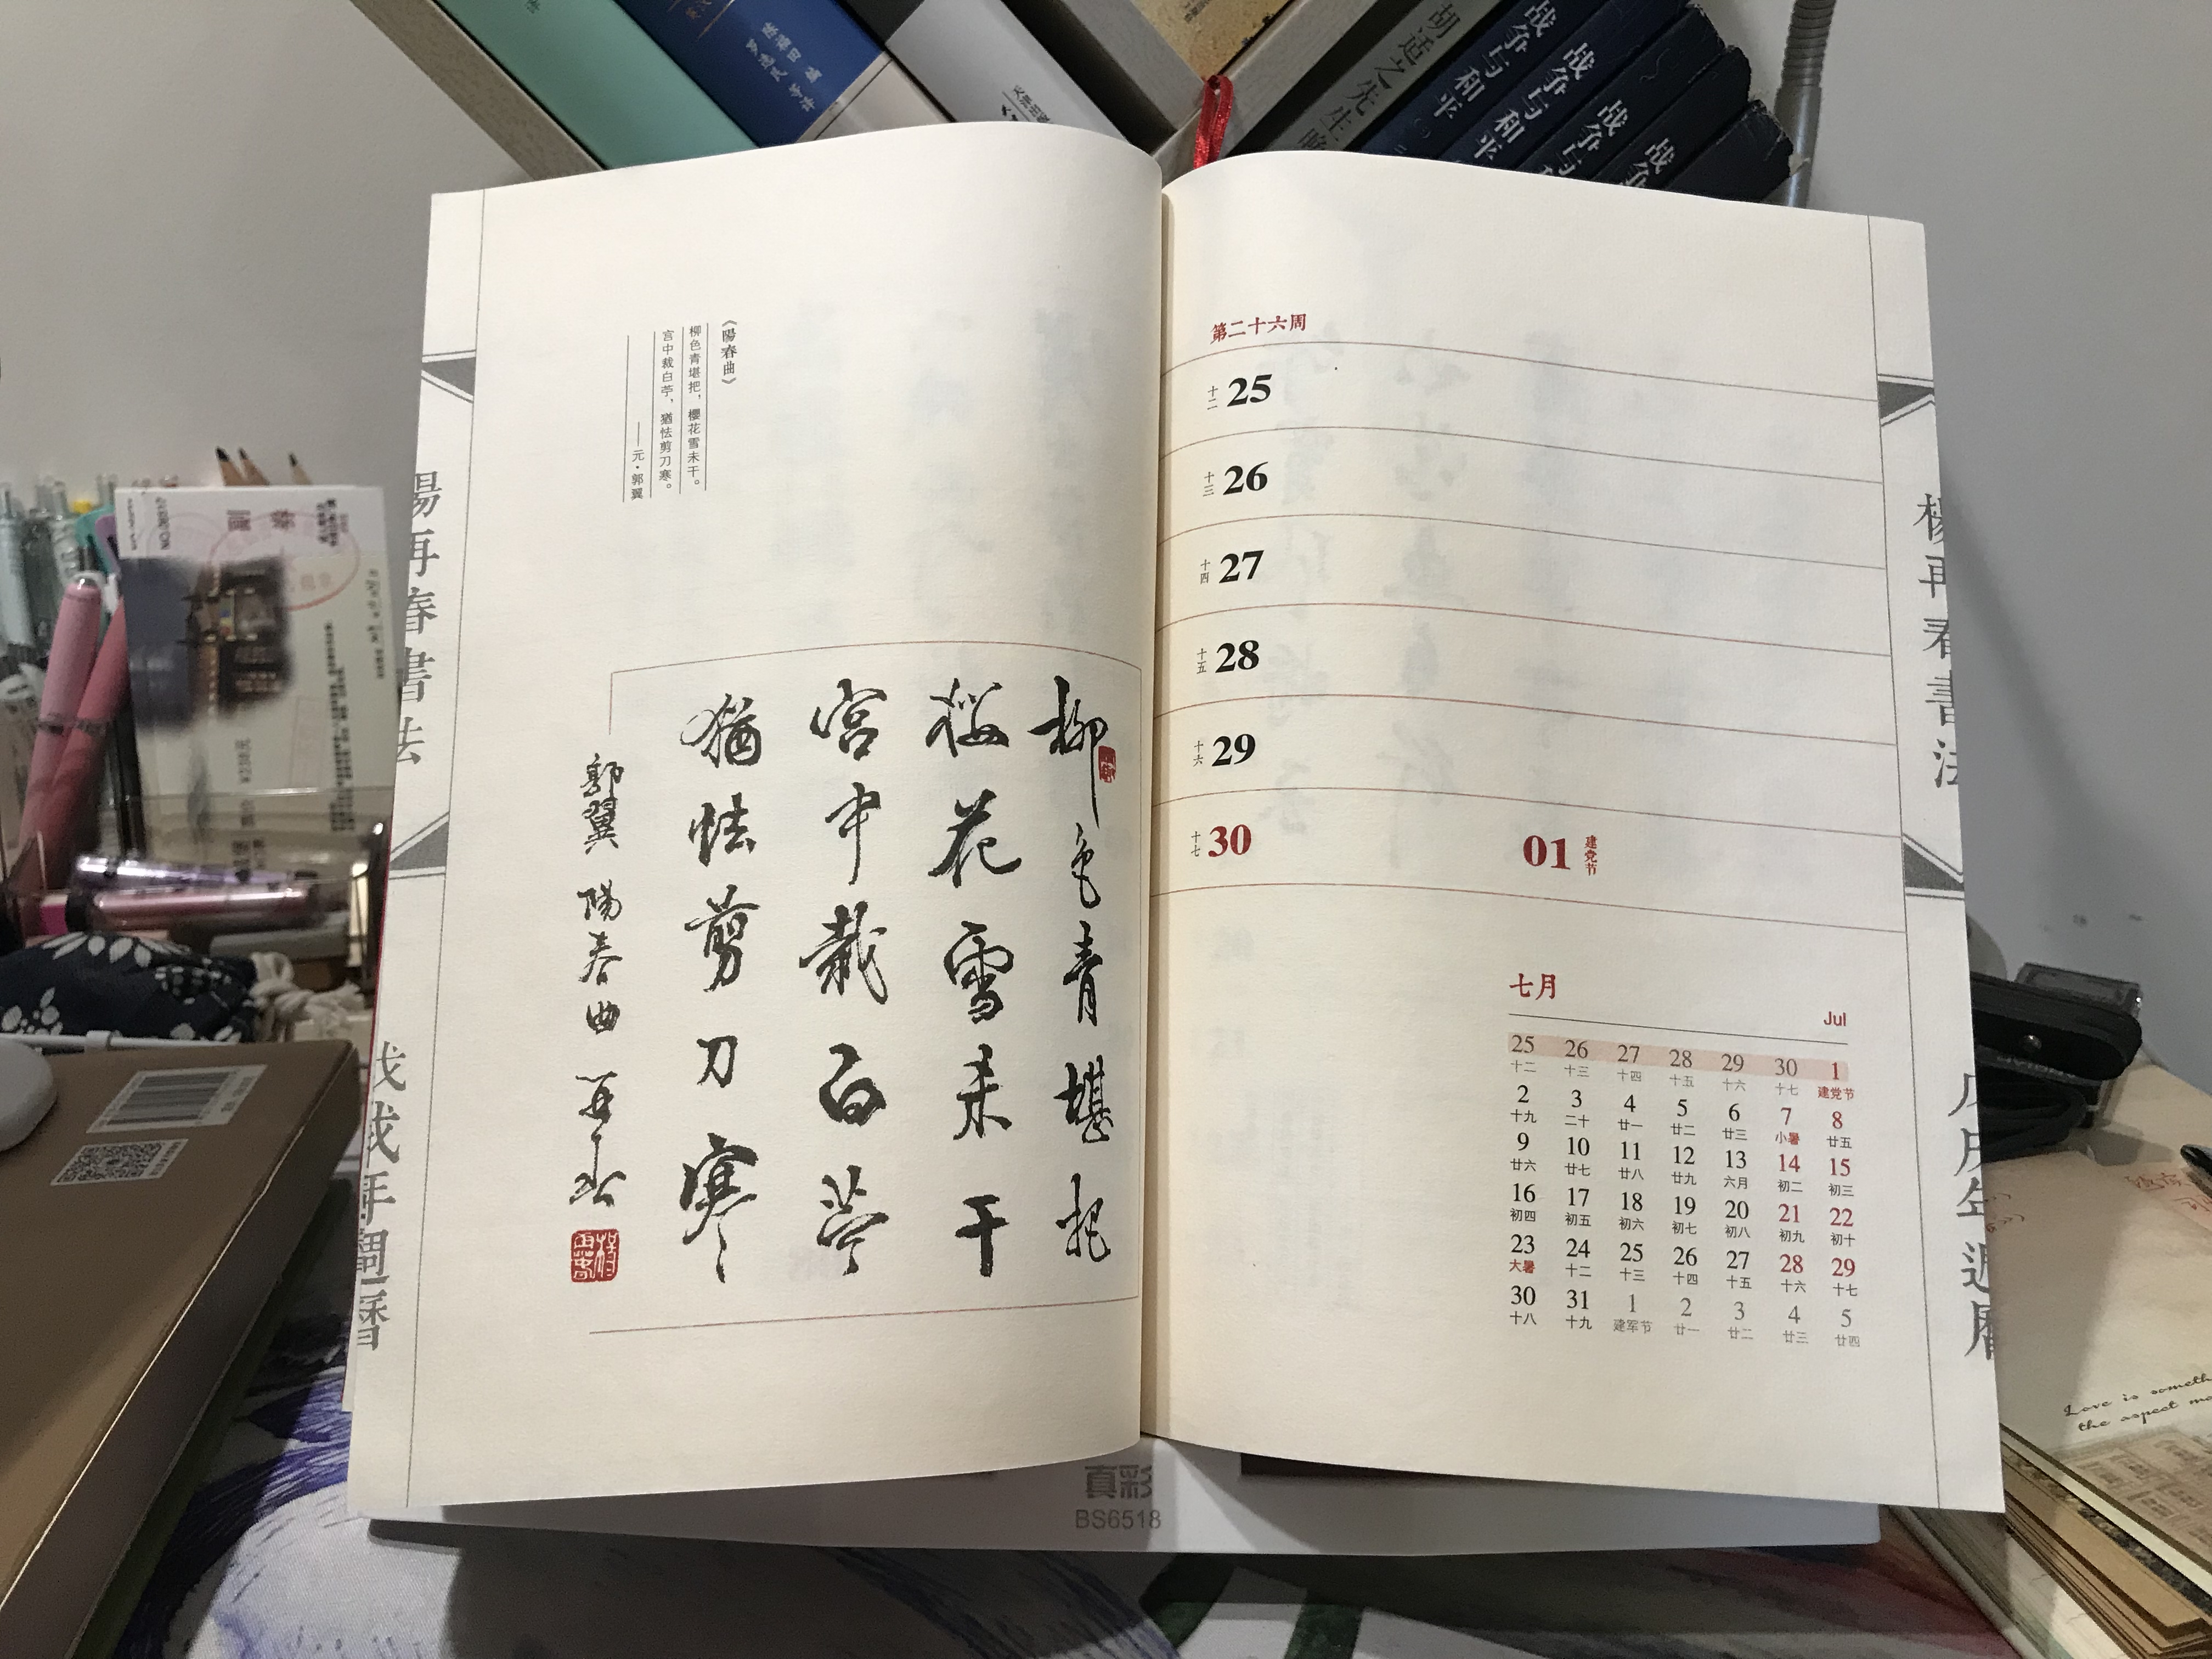 《陽春曲》
柳色青堪把，櫻花雪未干。
宫中裁白苧，猶怯剪刀寒。
——元·郭翼
柳色青堪把
桜花雪未干
宮中裁白苧
猶怯剪刀寒
郭翼 陽春曲 再春
陽再春書法
戊戌年週曆
第二十六周
十二 25
十三 26
十四 27
十五 28
十六 29
十七 30
01 建党节
七月
Jul
25 26 27 28 29 30 1
十二 十三 十四 十五 十六 十七 建党节
2 3 4 5 6 7 8
十九 二十 廿一 廿二 廿三 小暑 廿五
9 10 11 12 13 14 15
廿六 廿七 廿八 廿九 六月 初二 初三
16 17 18 19 20 21 22
初四 初五 初六 初七 初八 初九 初十
23 24 25 26 27 28 29
大暑 十二 十三 十四 十五 十六 十七
30 31 1 2 3 4 5
十八 十九 建军节 廿一 廿二 廿三 廿四
楊再春書法
戊戌年週曆
胡适之先生晚
战争与和平
战争与和平
战争与
战争
真彩
BS6518
Love is someth
the aspect mo